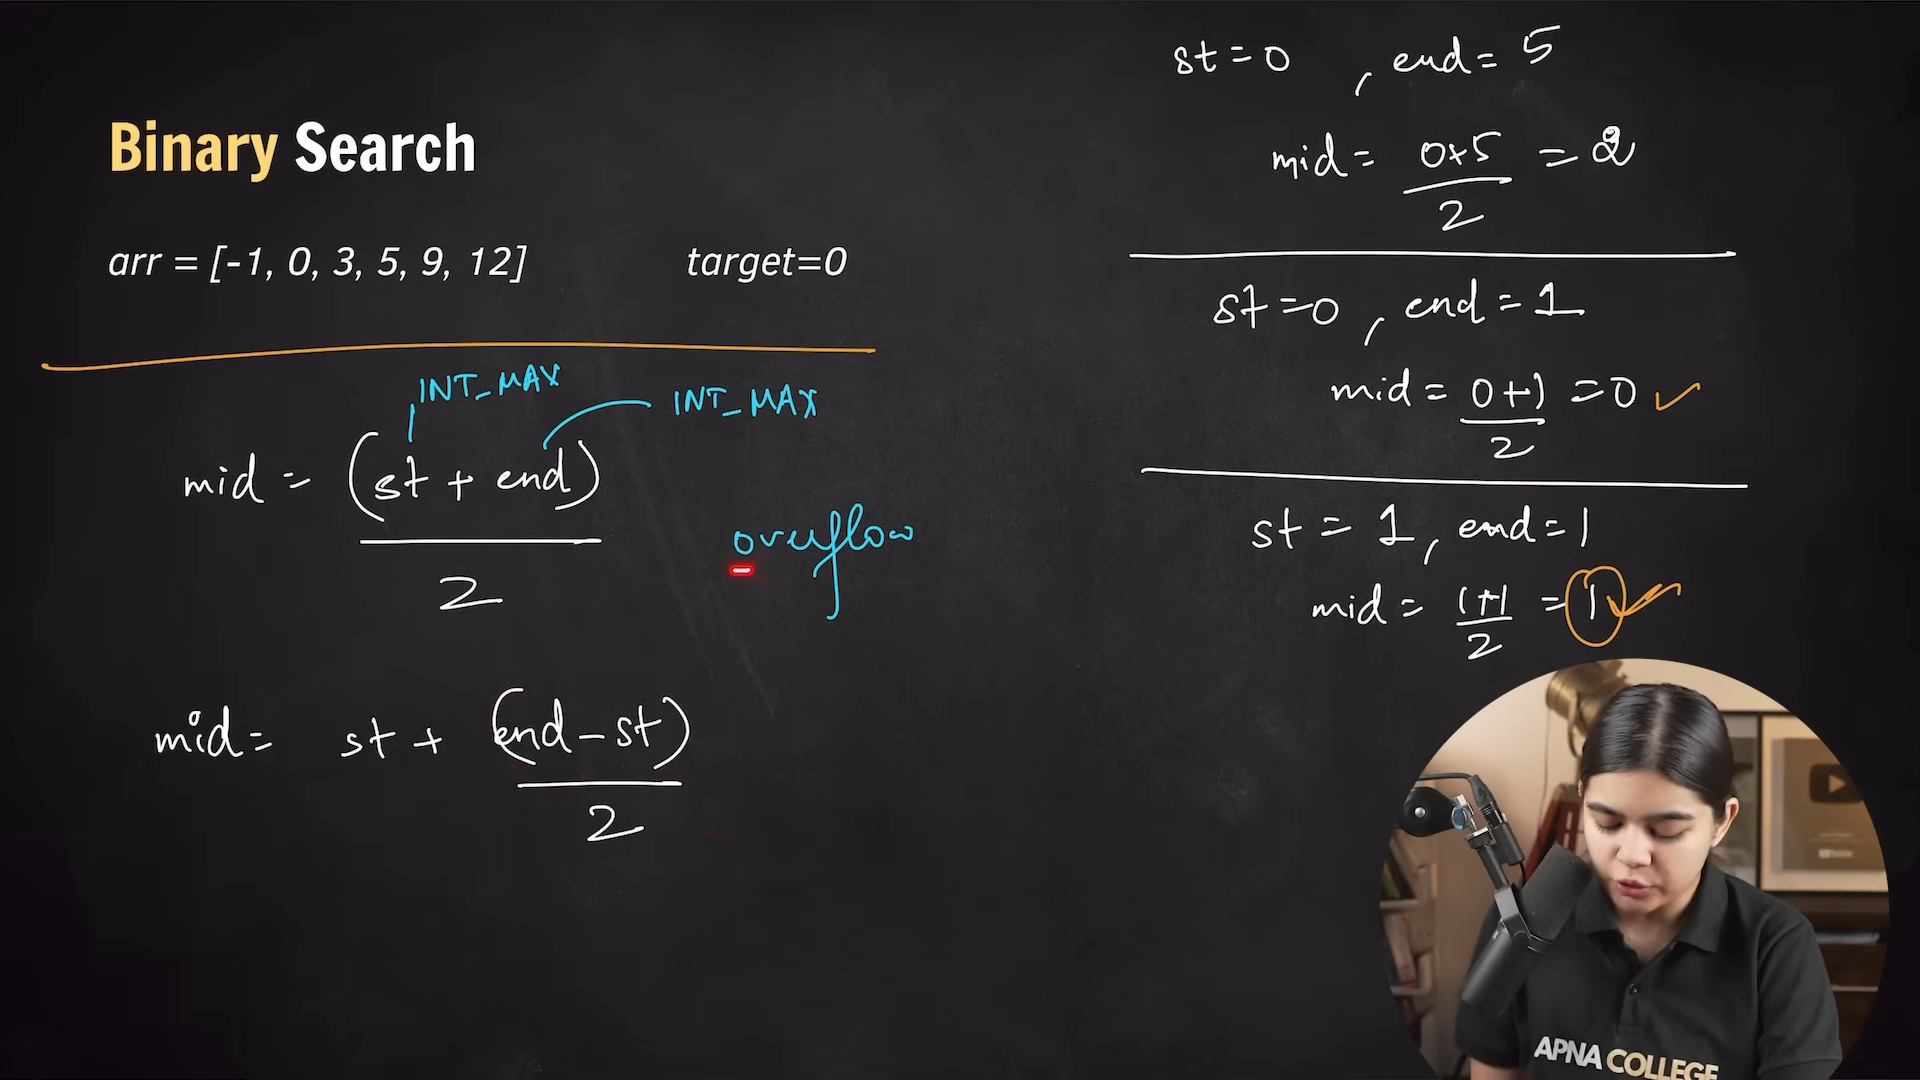 Binary Search
arr = [-1, 0, 3, 5, 9, 12] target=0
INT_MAX
INT_MAX
mid = (st + end)
2
overflow
mid = st + (end - st)
2
st = 0 , end = 5
mid = 0+5 = 2
2
st = 0 , end = 1
mid = 0+1 = 0 ✓
2
st = 1 , end = 1
mid = 1+1 = 1 ✓
2
APNA COLLEGE